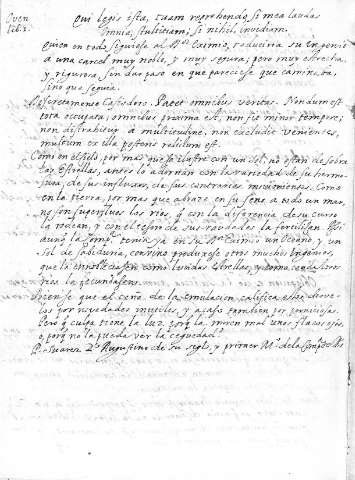 Oven lib. 2.
Qui legis ista, tuam reprehendo, si mea laudas
Omnia, stultitiam; si nihil, invidiam.
Quien en todo siguiese al P.e Eximio, reduciria su Ingenio
a una carcel muy noble, y muy segura; pero muy estrecha,
y rigurosa, sin dar paso en que pareciese que caminaba,
sino que seguia.
Discretamente Casiodoro. Patet omnibus veritas. Nondum est
tota occupata; omnibus proxima est, non fit minor tempore;
non distrahitur a multitudine, non excludit venientes,
multum ex illa posteris relictum est.
Como en el cielo, por mas que se ilustre con un sol, no estan de sobra
las Estrellas, antes lo adornan con la variedad de su hermo-
sura, de sus influxos, de sus contrarios movimientos. Como
en la tierra, por mas que abraze en su seno a todo un mar,
no son superfluos los rios, q con la diferencia de su curso
la rodean, y con el tesoro de sus raudales la fertilizan. Assi
aunq la Comp.a tenia ya en su P.e Eximio un Oceano y un
Sol de Sabiduria, convino produxese otros muchos Ingenios,
que la como lucidas Estrellas, y como caudalosos
rios la fecundasen.
Piense que el ceño de la emulacion califica estos desve-
los por novedades inutiles, y acaso tambien por perniciosas.
Pero q culpa tiene la luz, porq la miren mal unos flacos ojos,
o porq no la pueda ver la ceguedad?
P. Suarez 2.o Augustino de su siglo, y primer M.o de la Comp.a de Jhs